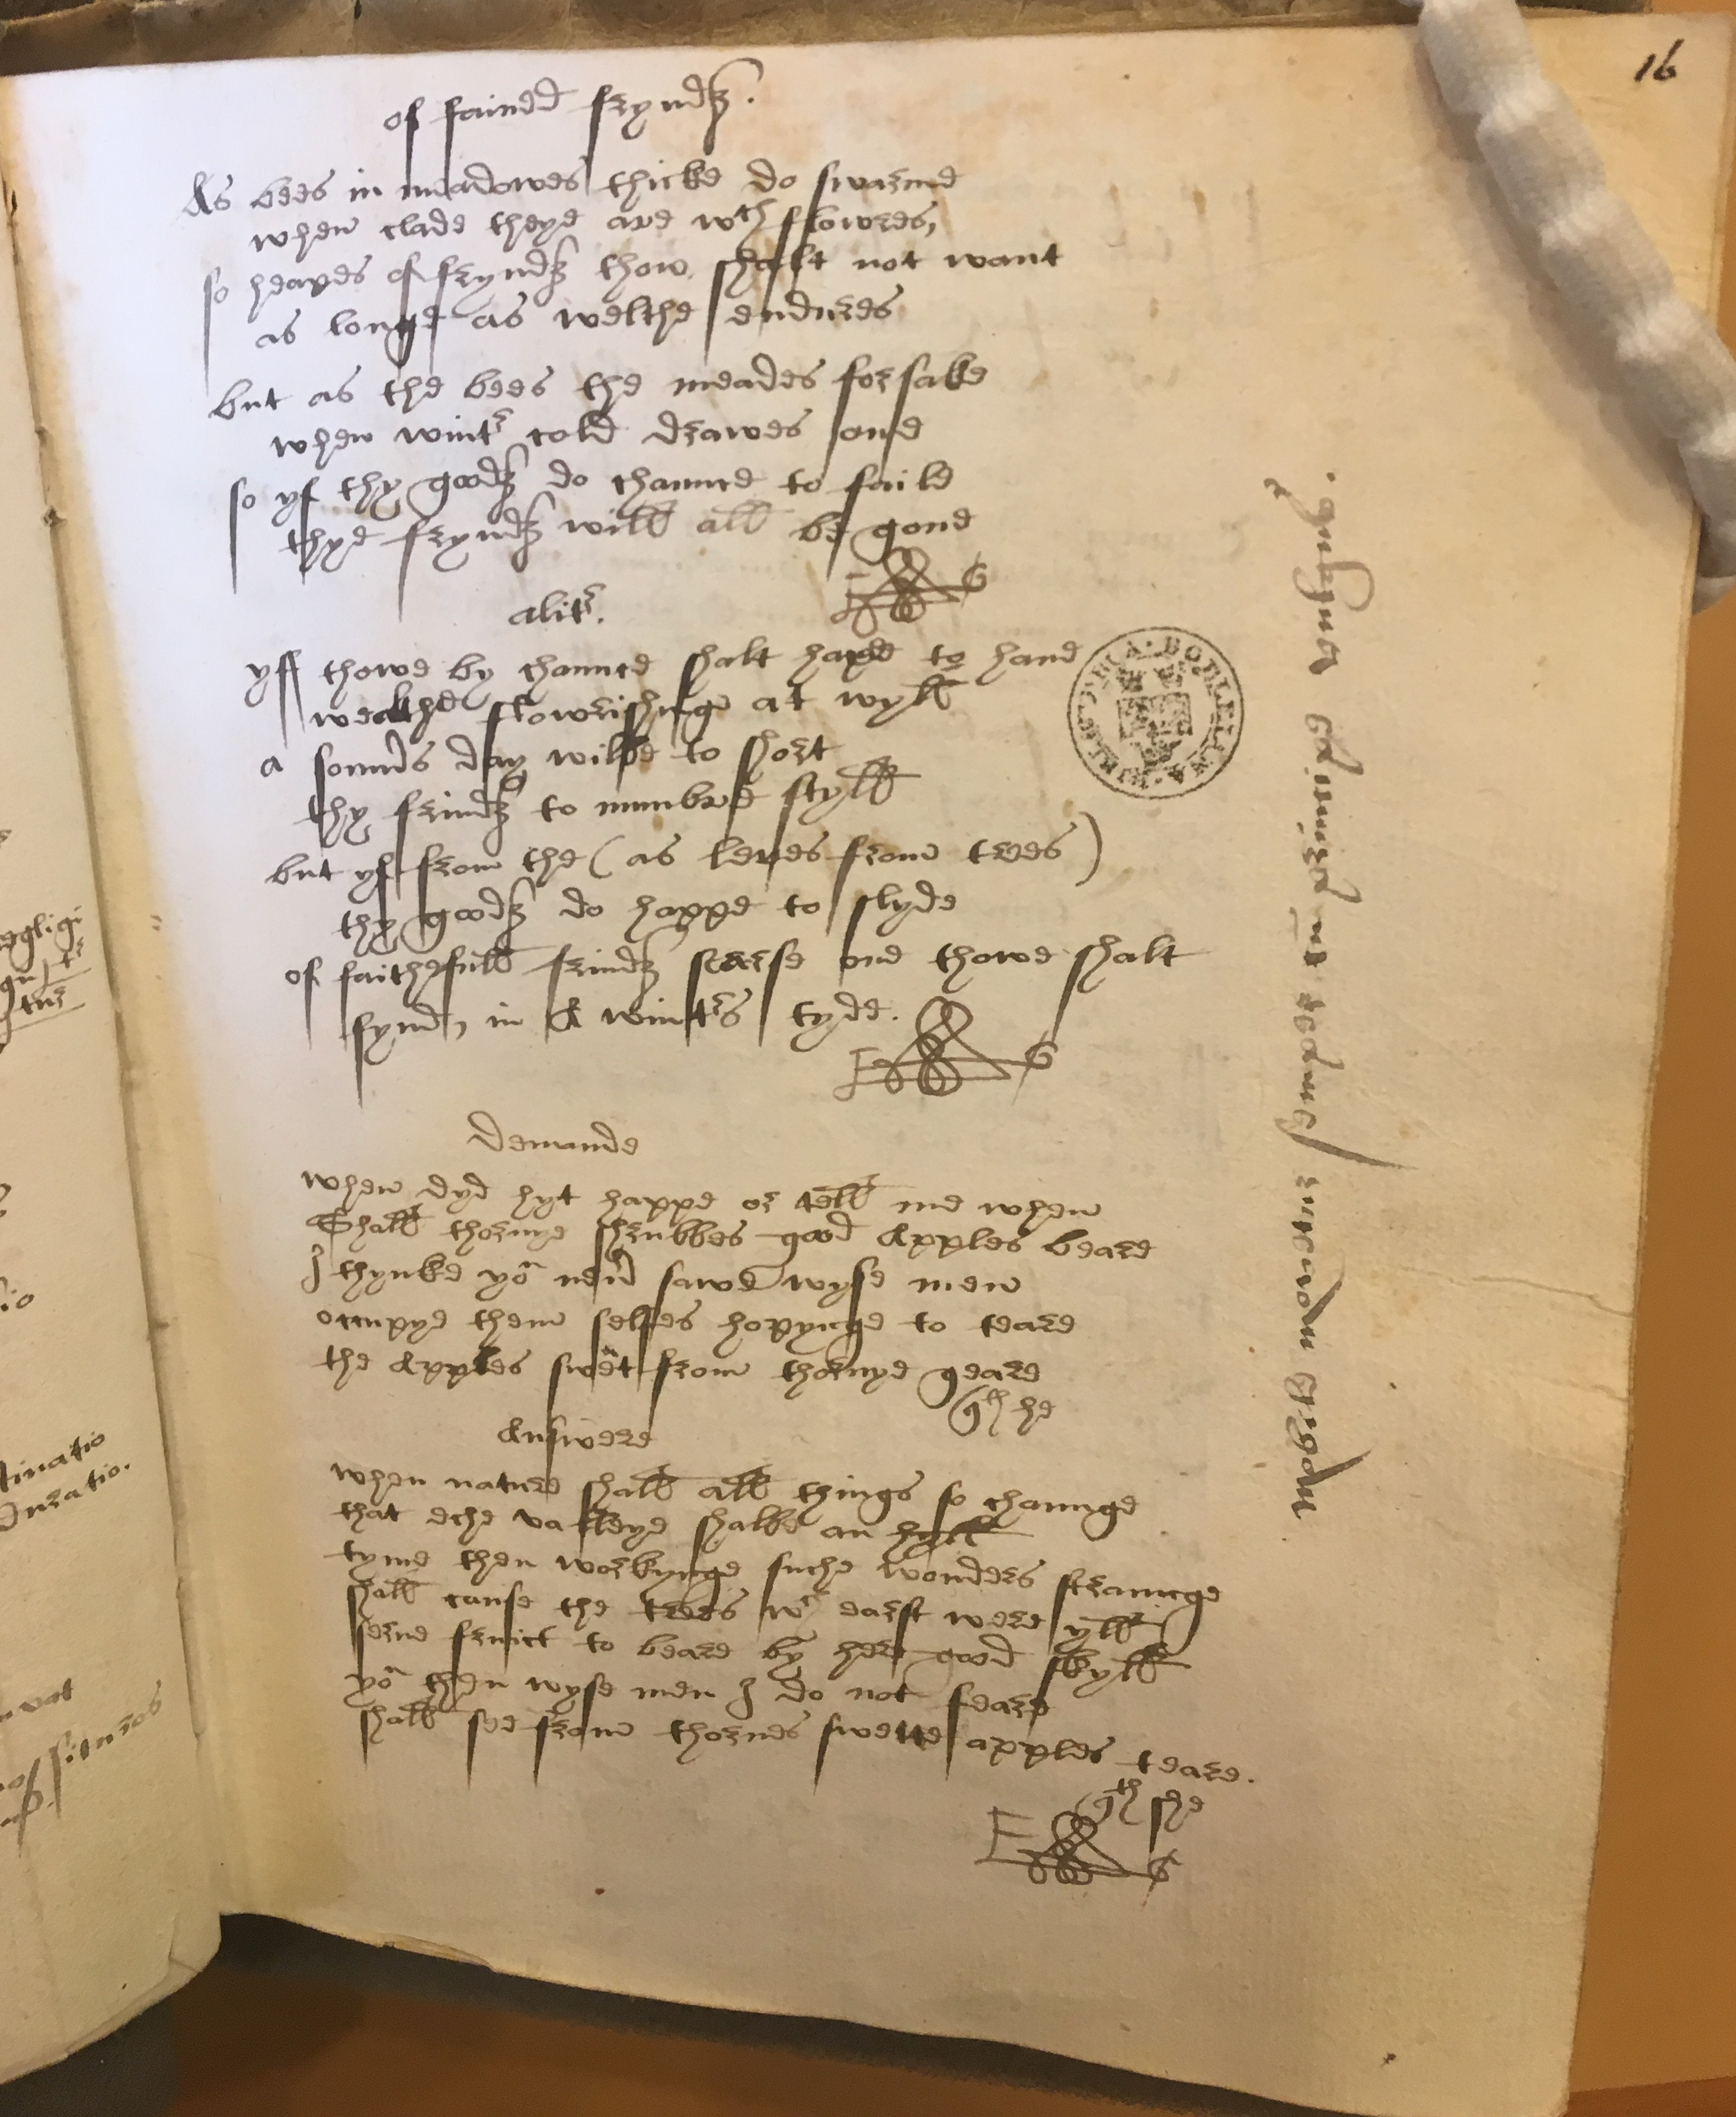 16
of fained fryndę.
As bees in meadowes thicke do swarme
when clade theye are wth flowres,
so heapes of fryndę thow shalt not want
as longe as welthe endures
but as the bees the meades forsake
when wintr cold drawes one
so yf thy goodę do chaunce to faile
thye fryndę will all be gone
E G
alitr.
yff thowe by chaunce shalt have to hand
wealthe flowrishinge at wyll
a somers day wilbe to short
thy frindę to numbre styll
but yf from the (as leves from trees)
thy goodę do happe to slyde
of faithefull frindę scarse one thowe shalt
fynd, in A wintrs tyde.
E G
Demande
when dyd hyt happe or tell me when
Shall thornye shrubbes good Apples beare
I thynke yo nevr sawe wyse men
occupye them selfes hopynge to teare
the Apples swet from thornye geare
qth he
Answere
when nature shall all things so chaunge
that eche valleye shalbe an hyll
tyme then workynge suche wonders straunge
shall cause the trees wch earst were yll
serne fruict to beare by her good skyll
yo then wyse men I do not feare
shall see from thornes swette apples teare.
qth she
E G
BODLEIANA